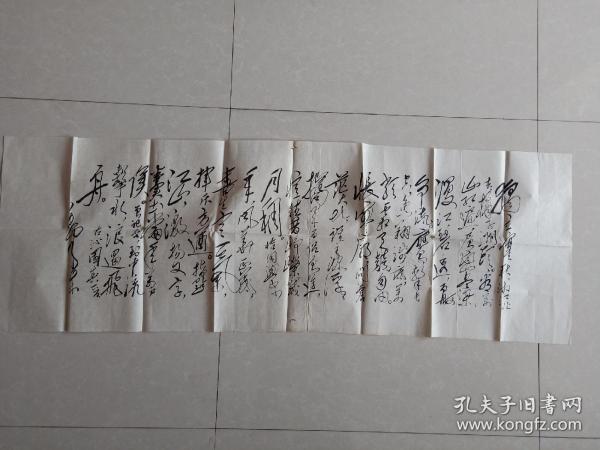 独立寒秋湘江北
去橘子洲头看万
山红遍层林尽染
漫江碧透百舸
争流鹰击长空
鱼翔浅底万
类霜天竞自由
怅寥廓问苍
茫大地谁主沉浮
携来百侣曾游
忆往昔峥嵘岁
月稠恰同学少
年风华正茂
书生意气
挥斥方遒指点
江山激扬文字
粪土当年万户
侯曾记否到中流
击水浪遏飞
舟
孔夫子旧书网
www.kongfz.com